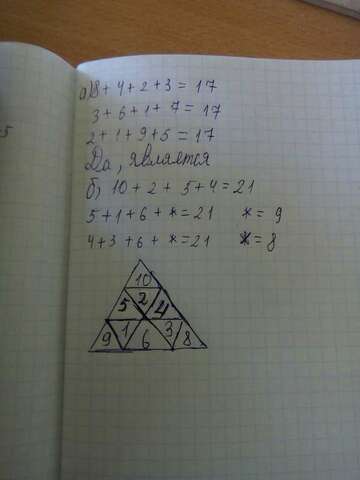 а) 8 + 4 + 2 + 3 = 17
3 + 6 + 1 + 7 = 17
2 + 1 + 9 + 5 = 17
Да, является
б) 10 + 2 + 5 + 4 = 21
5 + 1 + 6 + * = 21 * = 9
4 + 3 + 6 + * = 21 * = 8
10
5 2 4
9 1 6 3 8
5